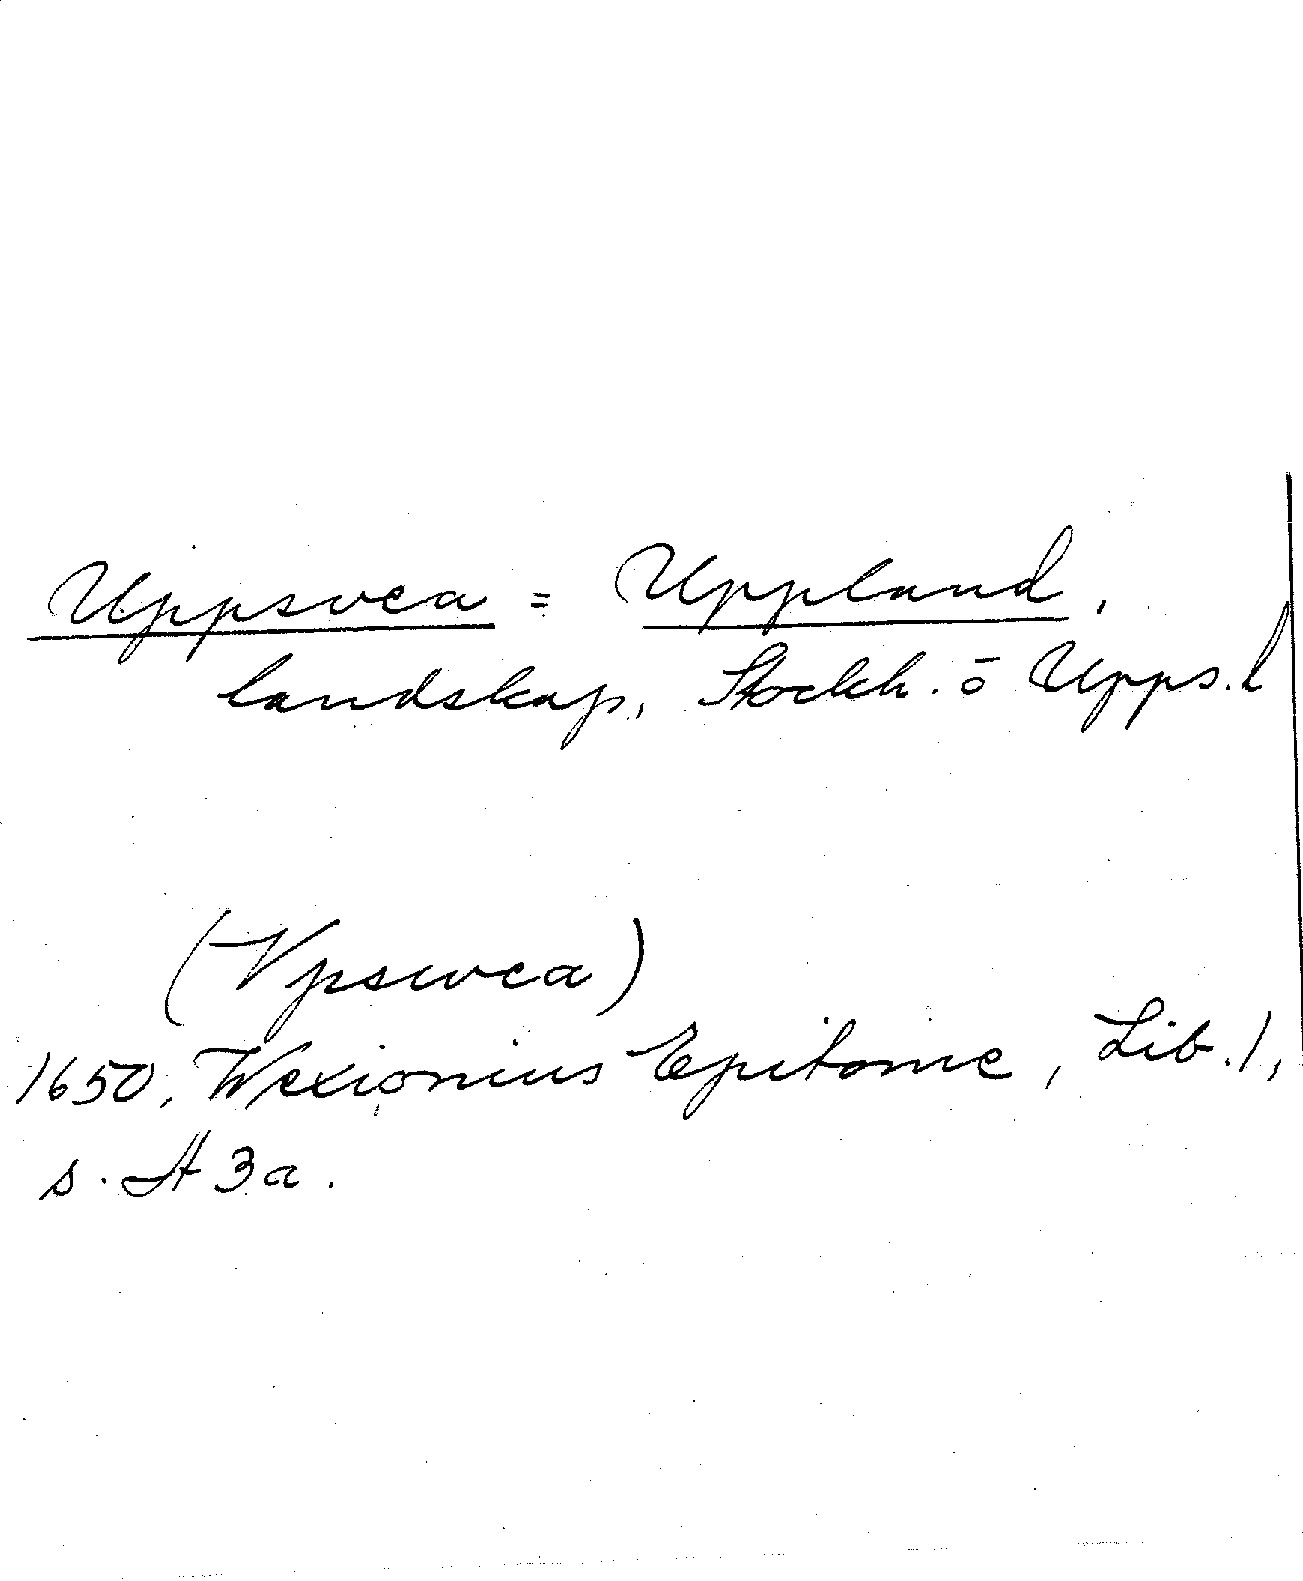 Uppsvea = Uppland,
landskap, Stockh. o Upps. l
(Vpswea)
1650, Wexionius Epitome, Lib. 1,
s. A 3 a.